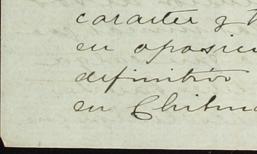 caracter y t
en oposici
definitivo
en Chihua